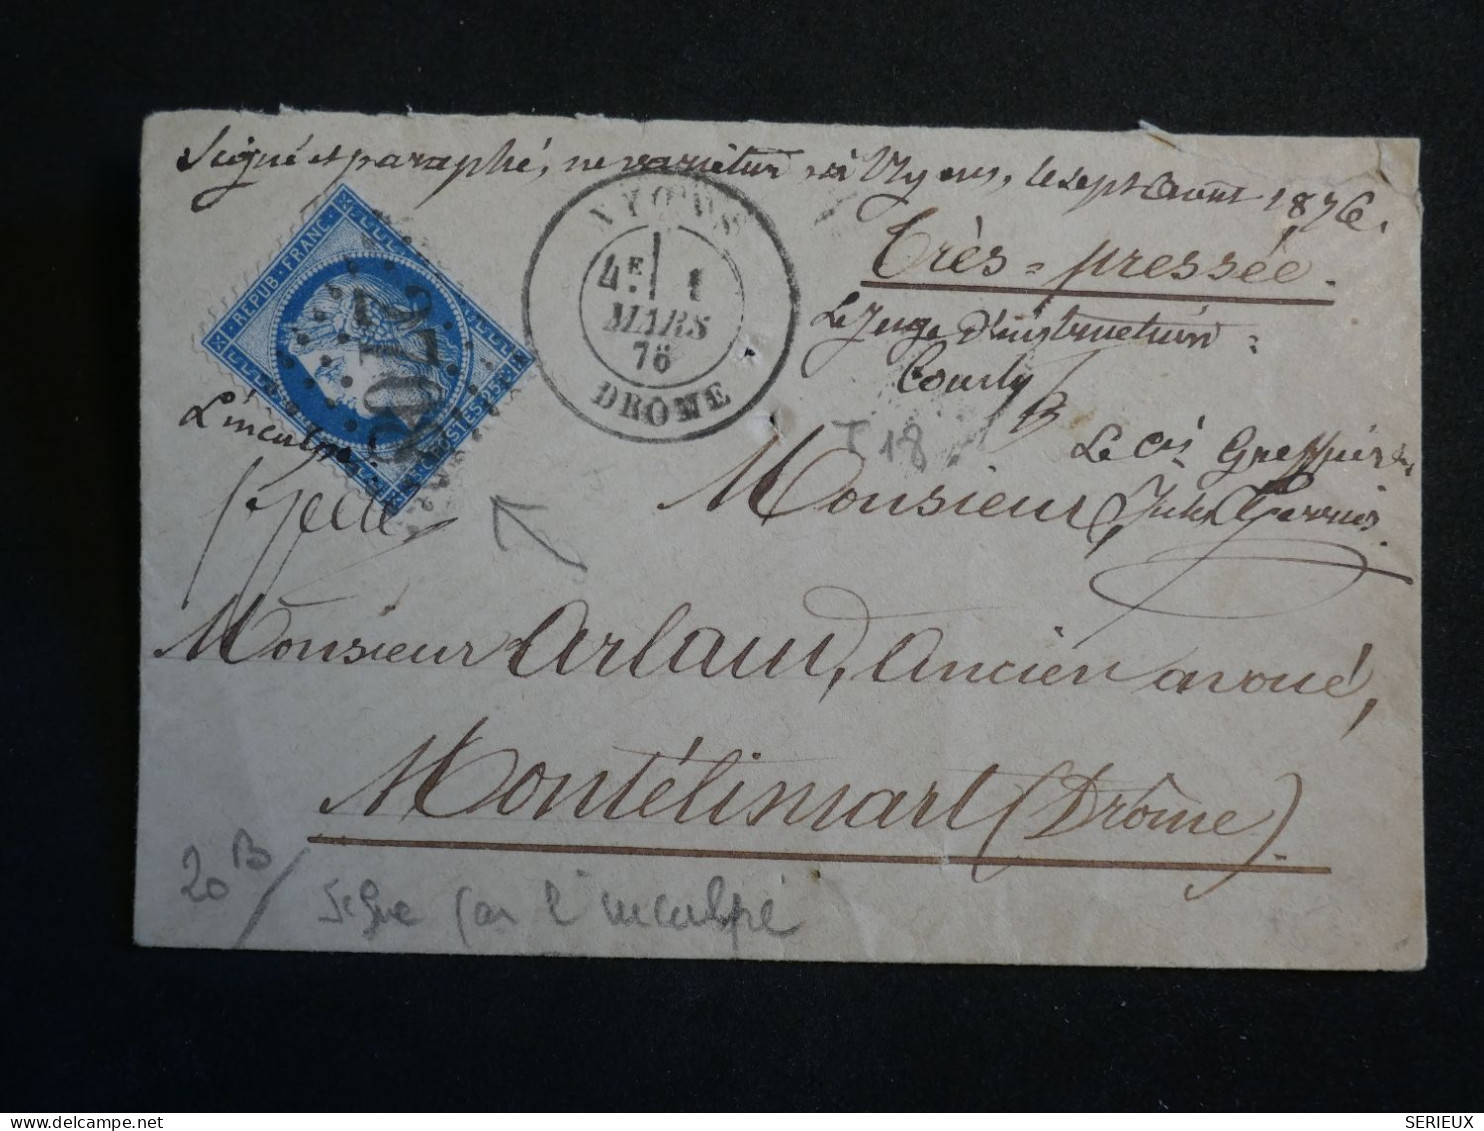 Signé et paraphé, ne varietur, à Nyons, le sept Août 1876.
NYONS
4E 1
MARS
76
DROME
REPUB. FRANC.
POSTES 25
2702
Très-pressée.
Le Juge d'instruction
L'inculpé
T 18
Le Cis Greffier
Monsieur,
Monsieur Arlaud, Ancien avoué,
Montélimart (Drôme).
20 B
Signé par l'inculpé
delcampe.net
SERIEUX